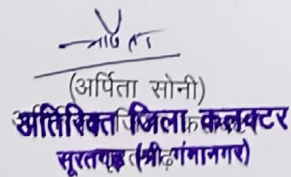 (अर्पिता सोनी)
अतिरिक्त जिला कलक्टर
सूरतगढ़ (श्रीगंगानगर)